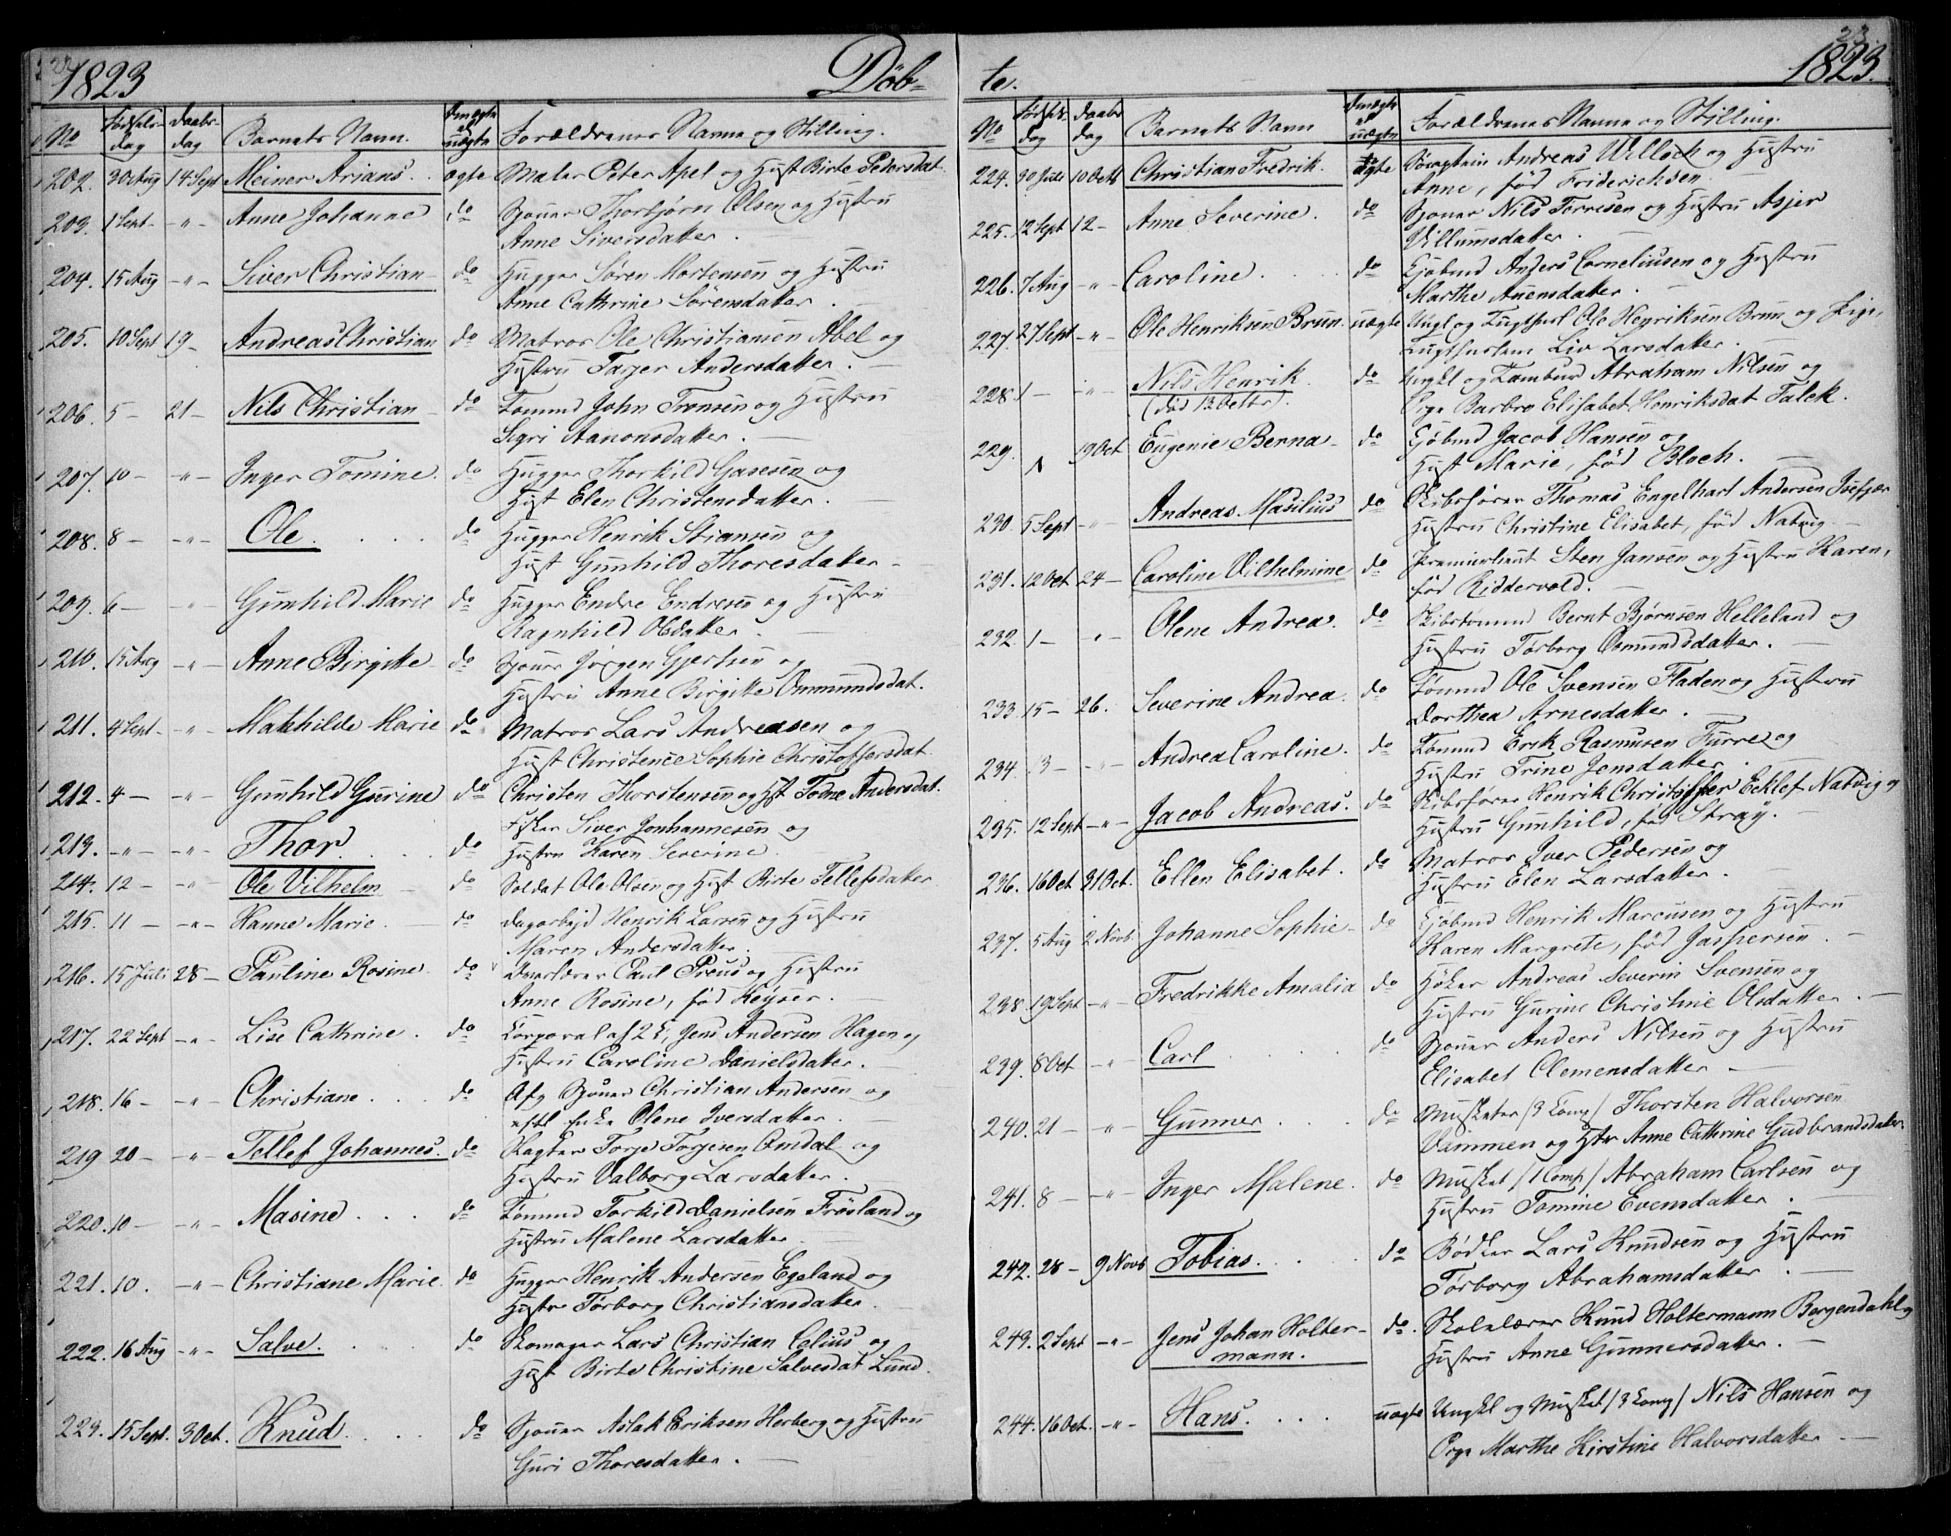 22
1823
Døb-
No Fødsels-dag Daabs-dag Barnets Navn. Om ægte el uægte Forældrenes Navne og Stilling.
202. 30 Aug 14 Sept Meiner Arians. ægte Maler Peter Apel og Hust Birte Pedersdat.
203. 1 Sept - " - Anne Johanne do Spouer Thorbjørn Olsen og Hustru
Anne Siversdatter.
204. 15 Aug - " - Siver Christian do Hugger Søren Mortensen og Hustru
Anne Cathrine Sørensdatter.
205. 10 Sept 19 - Andreas Christian do Matros Ole Christiansen Abel og
Hustru Tarjer Andersdatter.
206. 5 - 21 - Nils Christian do Tømmd John Tronsen og Hustru
Sigri Aanonsdatter.
207. 10 - - " - Inger Tomine. do Hugger Thorkild Gasesen og
Hust Elen Christensdatter.
208. 8 - - " - Ole. do Hugger Henrik Stiansen og
Hust Gunhild Thoresdatter.
209. 6 - " Gunhild Marie do Hugger Endre Endresen og Hustru
Ragnhild Olsdatter.
210. 15 Aug - " - Anne Birgitte do Spouer Jørgen Gjertsen og
Hustru Anne Birgitte Ommundsdat.
211. 4 Sept - " - Mathilde Marie do Matros Lars Andreasen og
Hust Christence Sophie Christoffersdat.
212. 4 - - " - Gunhild Gurine do Christen Thorstensen og Hst Tone Andersdat.
213. - " - - " - Thor. do Fisker Siver Johannesen og
Hustru Karen Severine
214. 12 - - " - Ole Vilhelm do Soldat Ole Olsen og Hust Birte Tellefsdatter
215. 11 - - " - Hanne Marie. do Dagarbejd Henrik Larsen og Hustru
Maren Andersdatter.
216. 15 Juli 28 - Pauline Rosine. do Overlærer Paul Preus og Hustru
Anne Rosine, fød Keyser.
217. 22 Sept - " - Lise Cathrine. do Corporal af 2 C, Jens Andersen Hagen og
Hustru Caroline Danielsdatter.
218. 16 - - " - Christiane. do Afg Spouer Christian Andersen og
eftl Enke Olene Iversdatter.
219 20 - - " - Tellef Johannes. do Vægter Torje Torjesen Omdal og
Hustru Valborg Larsdatter.
220. 10 - - " - Masine. do Tømmd Torkild Danielsen Frøsland og
Hustru Malene Larsdatter.
221. 10. - " - Christiane Marie. do Hugger Henrik Andersen Egeland og
Hustr Tørborg Christiansdatter.
222. 16 Aug - " - Salve. do Skomager Lars Christian Celius og
Hust Birte Christine Salvesdat Lund.
223. 15 Sept. 3 Oct. Knud. do Spouer Aslak Eriksen Herberg og Hustru
Guri Thoresdatter.
23.
te.
1823.
No Fødsels-dag Daabs-dag Barnets Navn Om ægte el uægte Forældrenes Navne og Stilling.
224. 30 Juli 10 Octb Christian Fredrik. ægte Søcaptein Andreas Willock og Hustru
Anne, fød Fridericksen
225. 12 Sept 12 - Anne Severine. do Spouer Nils Terresen og Hustru Asjer
Villumsdatter.
226. 7 Aug - " - Caroline. do Kjøbmd Anders Corneliusen og Hustru
Marthe Auensdatter.
227. 27 Sept - " - Ole Henriksen Brun. uægte Ungk og Tugthusl Ole Henriksen Brun og Pige,
Tugthuslem Liv Larsdatter.
228. 1 - " - Nils Henrik. do Ungkl og Tambur Abraham Nilsen og
(død 13 Octbr). Pige Barbro Elisabet Henriksdat Falck.
229. 19 Oct Eugenie Berna - do Kjøbmd Jacob Hansen og
Hust Marie, fød Bloch.
230. 5 Sept - " - Andreas Masilius do Skibsfører Thomas Engelhart Andersen
Hustru Christine Elisabet, fød Natvig
231. 12 Oct 24 - Caroline Vilhelmine do Premierlieut Sten Jansen og Hustru Karen,
fød Riddervold.
232. 1 - " Olene Andrea. do Skibstømmd Bernt Bjørnsen Helleland og
Hustru Tørborg Osmundsdatter.
233 15 - 26. Severine Andrea. do Tømmd Ole Svensen Fladen og Hustru
Dorthea Arnesdatter.
234. 3 - - " - Andrea Caroline. do Tømmd Erik Rasmusen Furre og
Hustru Trine Jensdatter
235. 12 Sept - " - Jacob Andreas. do Skibsfører Henrik Christoffer Ecklef Natvig og
Hustru Gunhild, fød Stray.
236. 16 Oct 31 Oct. Ellen Elisabet. do Matros Iver Pedersen og
Hustru Elen Larsdatter.
237. 5 Aug 2 Novb. Johanne Sophie - do Kjøbmd Henrik Marcusen og Hustru
Karen Margrete, fød Jaspersen.
238. 19 Sept - " - Fredrikke Amalia do Høker Andreas Severin Svensen og
Hustru Gurine Christine Olsdatter.
239. 8 Oct - " - Carl do Spouer Anders Nilsen og Hustru
Elisabet Clemensdatter
240. 21 - - " - Gunner. do Musketer /3 Comp/ Thorsten Halvorsen
Vammen og Hstr Anne Cathrine Gudbrandsdatter.
241. 8 - - " - Inger Malene. do Musket /1 Comp/ Abraham Carlsen og
Hustru Tomine Evensdatter.
242. 28 - 9 Novb Tobias. do Bødker Lars Knudsen og Hustru
Tørborg Abrahamsdatter.
243. 2 Sept - " - Jens Johan Holter- do. Skolelærer Knud Holtermann Borgendahl og
mann. Hustru Anne Gunnersdatter.
244. 16 Oct. - " - Hans. uægte Ungkl og Musket /3 Comp/ Nils Hansen og
Pige Marthe Kirstine Halvorsdatter